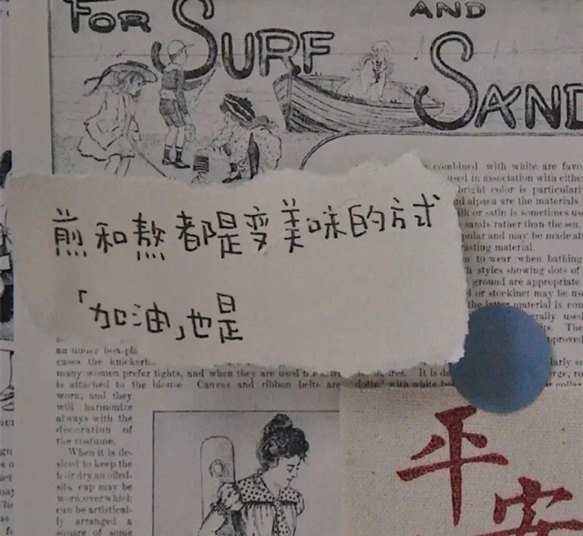 FOR SURF AND SAND
煎和熬都是变美味的方式
「加油」也是
combined with white are favo
used in association with eithe
bright color is particularl
d alpaca are the materials
ilk or satin is sometimes u
sands rather than the sea.
pular and may be made at
sting material.
to wear when bathing
h styles showing dots of
ground are appropriate
d or stockinet may be us
material is con
erally used
The
mproved
cases the knickerb
many women prefer tights, and when they are used
is attached to the blouse Canvas and ribbon belts are
worn, and they
will harmonize
always with the
decoration of
the costume.
When it is de-
sired to keep the
hair dry an oiled-
silk cap may be
worn, over which
can be artistical-
ly arranged a
square of some
平安